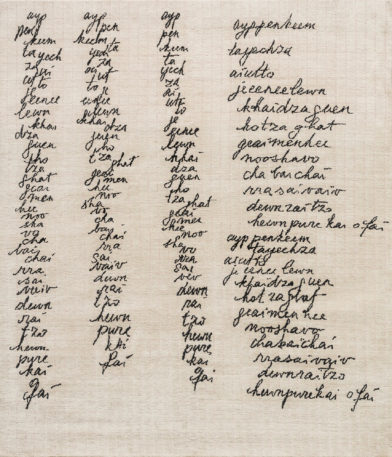 ayp
pen
keem
tayech
za
to
je
ceence
lewn
khai
dza
guen
gho
tza
ghat
geai
men
hee
noo
sha
vo
cha
bai
chai
rra
sai
vaiv
dewn
rai
tzo
hewn
pure
kai
o
fai
ayp
pen
keem
ta
yech
za
to
je
ceence
lewn
khai
dza
guen
ho
tza
ghat
geai
men
hee
noo
sha
vo
cha
bay
chai
rra
sai
vaiv
dewn
rai
tzo
hewn
pure
kai
fai
ayp
pen
keem
ta
yech
za
ai
to
je
ceence
lewn
khai
dza
guen
gho
tza
ghat
geai
men
hee
noo
sha
vo
rra
sai
vev
dewn
rai
tzo
hewn
pure
kai
o
fai
ayppenkeem
tayechza
aiutto
jeceencelewn
khaidzaguen
hotzaghat
geaimenhee
nooshavo
chabaichai
rrasaivaiv
dewnraitzo
hewnpure kai o fai
ayppenkeem
tayechza
aiutto
jeceencelewn
khaidzaguen
hotzaghat
geaimenhee
nooshavo
chabaichai
rrasaivaiv
dewnraitzo
hewnpurekai o fai